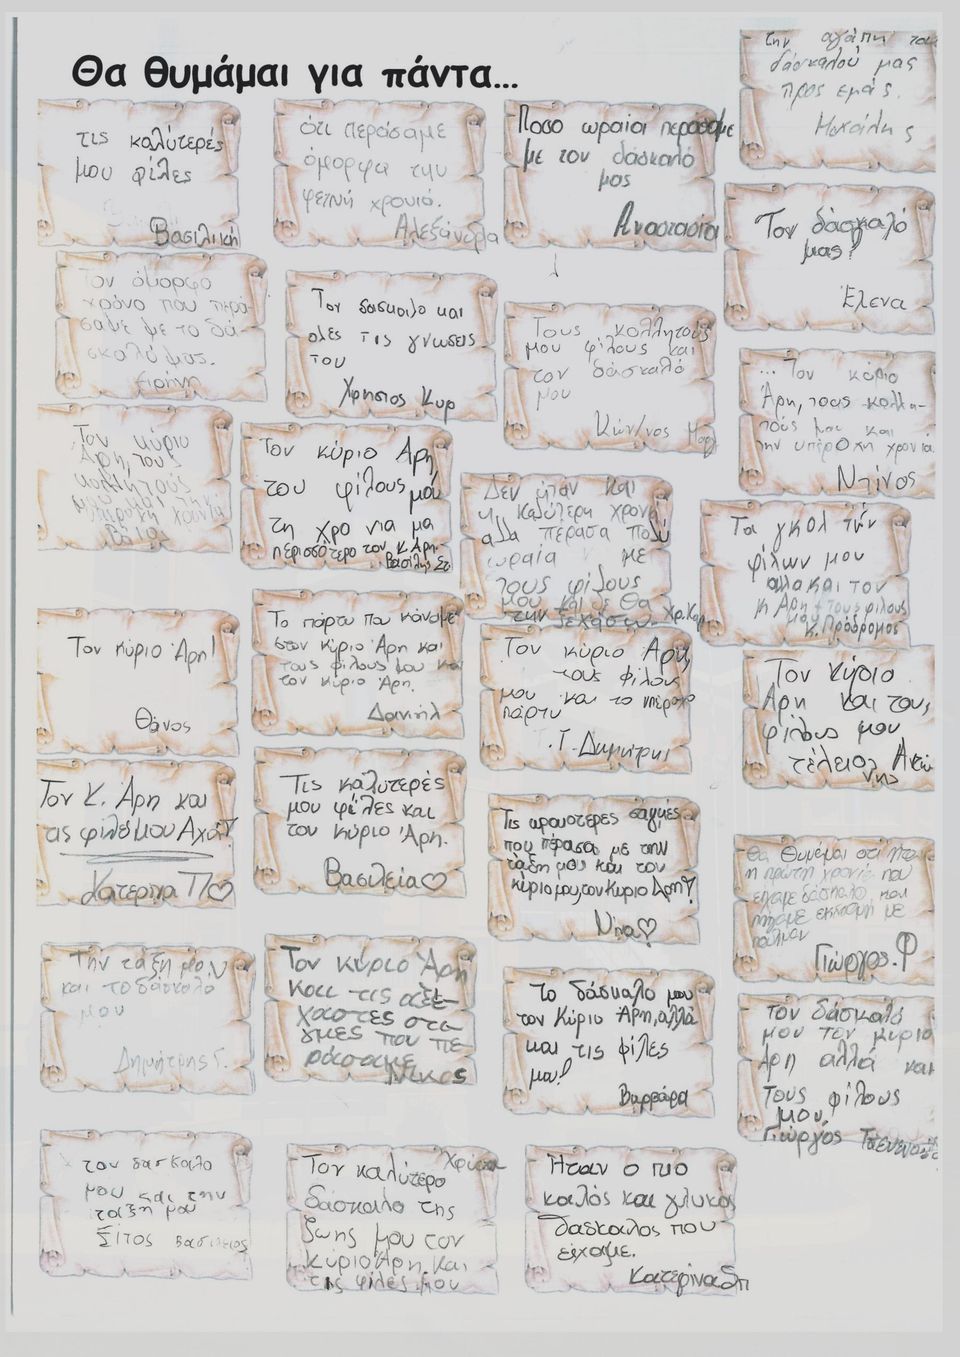 Θα θυμάμαι για πάντα...
την αγάπη του
δάσκαλού μας
προς εμάς.
Μιχαίλης
τις καλύτερές
μου φίλες
Βασιλική
ότι περάσαμε
όμορφα την
φετινή χρονιά.
Αλεξάνδρα
Ποσο ωραία περασαμε
με τον δάσκαλό
μας
Αναστασία
Τον δάσκαλό
μας!
Έλενα
Τον όμορφο
χρόνο που περά-
σαμε με το δά-
σκαλό μας.
Ειρήνη
Τον δασκαλο και
ολες τις γνωσεις
του
Χρηστος Κυρ
Τους κολλητούς
μου φίλους και
τον δάσκαλό
μου
Κων/νος
... Τον κύριο
Άρη, τους κολλη-
τούς μου και
την υπέροχη χρονιά.
Ντίνος
Τον κύριο
Άρη, τους
κολλητούς
μου και την
υπέροχη χρονιά
Τον κύριο Άρη,
του φίλους μου
τη χρο νια μα
περισσότερο τον κ. Άρη.
Βασίλης Στ
Δεν ήταν και
η καλύτερη χρονιά
αλλα πέρασα πολύ
ωραία με
τους φίλους
μου και δε θα
την ξεχάσω. Χρ. Καρ.
Τα γκολ των
φίλων μου
αλλα και τον
κ Αρη + τους φίλους
μου
κ. Πρόδρομος
Τον κύριο Άρη!
Θάνος
Το πάρτυ που κάναμε
στον κύριο Άρη και
τους φίλους μου και
τον κύριο Άρη.
Δανιήλ
Τον κύριο Αρη,
τους φίλους
μου και το υπέροχο
πάρτυ
Τ. Δημήτρης
Τον κύριο
Αρη και τους
φίλους μου
τέλειος Αντώ
νης
Τον κ. Άρη και
τις φίλες μου Αχα!
Κατερινα Π♡
Τις καλύτερές
μου φίλες και
τον κύριο Άρη.
Βασιλεία♡
Τις ωραιότερες στιγμές
που πέρασα με την
τάξη μου και τον
κύριο μου, τον Κύριο Άρη!
Νίνα♡
Θα θυμάμαι ότι ήταν
η πρώτη χρονιά που
είχαμε δάσκαλο, και
πήγαμε εκδρομή με
πούλμαν
Γιώργος. Φ
Την τάξη μου
και το δάσκαλο
μου
Δημήτρης Γ.
Τον κύριο Άρη
και τις αξέ-
χαστες στι-
γμες που πε-
ράσαμε
Νίκος
το δάσκαλο μου
τον Κύριο Άρη, αλλά
και τις φίλες
μου!
Βαρβάρα
τον δάσκαλό
μου τον κύριο
Άρη αλλά και
τους φίλους
μου
Γιώργος
τον δασκαλο
μου και την
ταξη μου
Σίτος Βασίλειος
Τον καλύτερο Χρύσα
δάσκαλο της
ζωής μου τον
κύριο Άρη. Και
τις φίλες μου
Ήταν ο πιο
καλός και γλυκος
δασκαλος που
είχαμε.
Κατερίνα Σπ